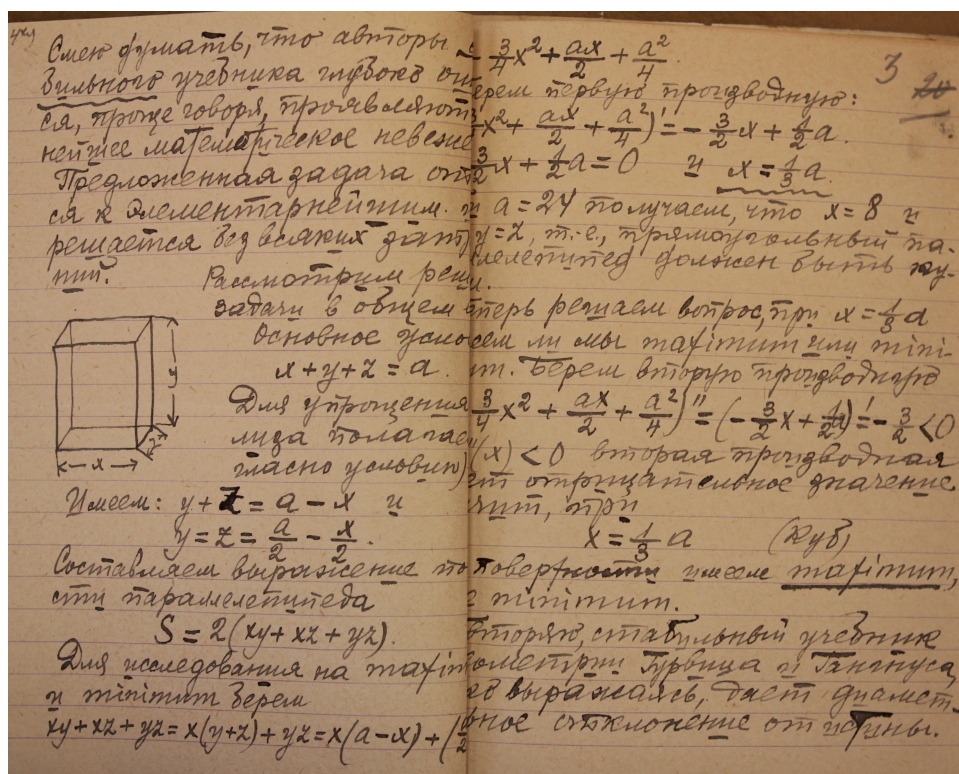 Смею думать, что авторы
бильного учебника глубоко
ся, проще говоря, проявляют
нейшее математическое невеже
Предложенная задача отн
ся к элементарнейшим. и
решается без всяких затр
ний.
Рассмотрим реш
задачи в общем
Основное усло
x + y + z = a.
Для упрощения
лиза полагае
гласно условию)
Имеем: y + z = a − x и
y = z = a/2 − x/2.
Составляем выражение по
сти параллелепипеда
S = 2(xy + xz + yz).
Для исследования на maxim
и minimum берем
xy + xz + yz = x(y+z) + yz = x(a−x) + (
3
20
3/4 x² + ax/2 + a²/4
берем первую производную:
x² + ax/2 + a²/4)' = − 3/2 x + 1/2 a.
3/2 x + 1/2 a = 0 и x = 1/3 a.
a = 24 получаем, что x = 8 и
y = z, т.-е., прямоугольный па-
лелепипед должен быть ку-
м.
перь решаем вопрос, при x = 1/3 a
еем ли мы maximum или mini-
m. Берем вторую производную
3/4 x² + ax/2 + a²/4)'' = (− 3/2 x + 1/2 a)' = − 3/2 < 0
''(x) < 0 вторая производная
ет отрицательное значение
чит, при
x = 1/3 a (куб)
поверхности имеем maximum,
е minimum.
вторяю, стабильный учебник
ометрии Гурвица и Гангнуса,
выражаясь, дает диамет-
ьное отклонение от истины.